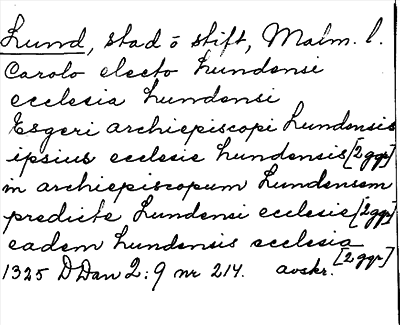 Lund, stad o stift, Malm. l.
Carolo electo Lundensi
ecclesia Lundensi
Esgeri archiepiscopi Lundensis
ipsius ecclesie Lundensis [2 ggr]
in archiepiscopum Lundensem
predicte Lundensi ecclesie [2 ggr]
eadem Lundensis ecclesia [2 ggr]
1325 DDan 2:9 nr 214. avskr.